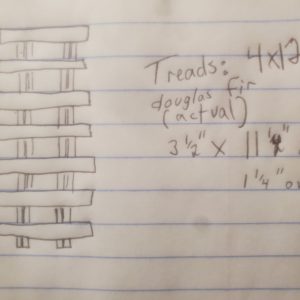 Treads: 4x12
douglas fir
(actual)
3 1/2" x 11 1/2"
1 1/4"